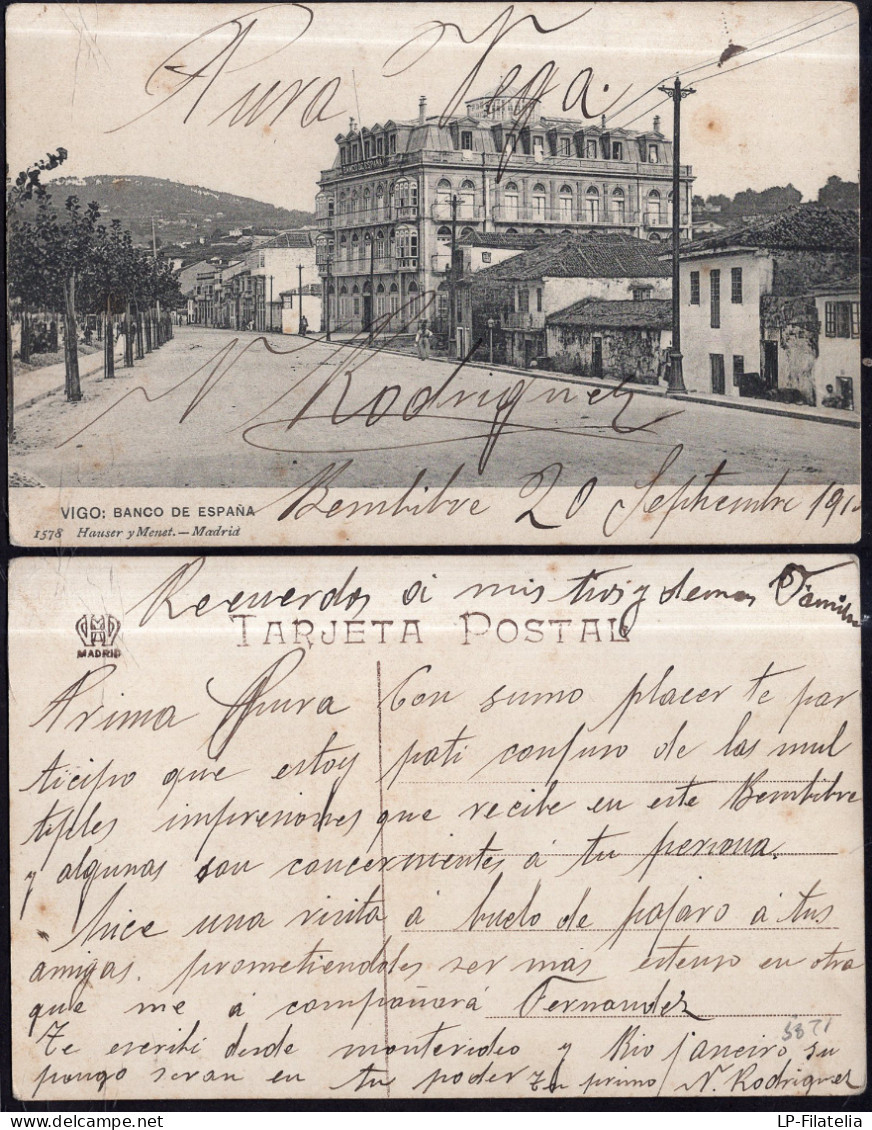 Pura Vega.
BANCO DE ESPAÑA
N Rodriguez
Bembibre 20 Septembre 191
VIGO: BANCO DE ESPAÑA
1578 Hauser y Menet.—Madrid
Recuerdos á mis tios y demas Familia
TARJETA POSTAL
MADRID
Prima Pura Con sumo placer te par
ticipo que estoy pati confuso de las mul
tiples impresiones que recibe en este Bembibre
y algunas son concernientes á tu persona.
hice una visita á buelo de pajaro á tus
amigas. prometiendoles ser mas estenso en otra
que me á compañará Fernandez
Te escribi desde montevideo y Rio janeiro, su
pongo seran en tu poder Tu primo N. Rodriguez
LP-Filatelia